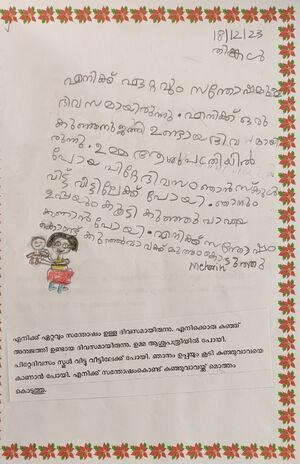 18/12/23
തിങ്കൾ
എനിക്ക് ഏറ്റവും സന്തോഷമുള്ള
ദിവസമായിരുന്നു. എനിക്ക് ഒരു
കുഞ്ഞനുജത്തി ഉണ്ടായ ദിവസമായി
രുന്നു. ഉമ്മ ആശുപത്രിയിൽ
പോയ പിറ്റേദിവസം ഞാൻ സ്കൂൾ
വിട്ട് വീട്ടിലേക്ക് പോയി. ഞാനും
ഉപ്പയും കൂട്ടി കുഞ്ഞു വാവയെ
കാണാൻ പോയി. എനിക്ക് സന്തോഷം
കൊണ്ട് കുഞ്ഞുവാവക്ക് മുത്തം കൊടുത്തു
Mehrin
എനിക്ക് ഏറ്റവും സന്തോഷം ഉള്ള ദിവസമായിരുന്നു. എനിക്കൊരു കുഞ്ഞ്
അനുജത്തി ഉണ്ടായ ദിവസമായിരുന്നു. ഉമ്മ ആശുപത്രിയിൽ പോയി.
പിറ്റേദിവസം സ്കൂൾ വിട്ടു വീട്ടിലേക്ക് പോയി. ഞാനും ഉപ്പയും കൂടി കുഞ്ഞുവാവയെ
കാണാൻ പോയി. എനിക്ക് സന്തോഷംകൊണ്ട് കുഞ്ഞുവാവയ്ക്ക് മൊത്തം
കൊടുത്തു.